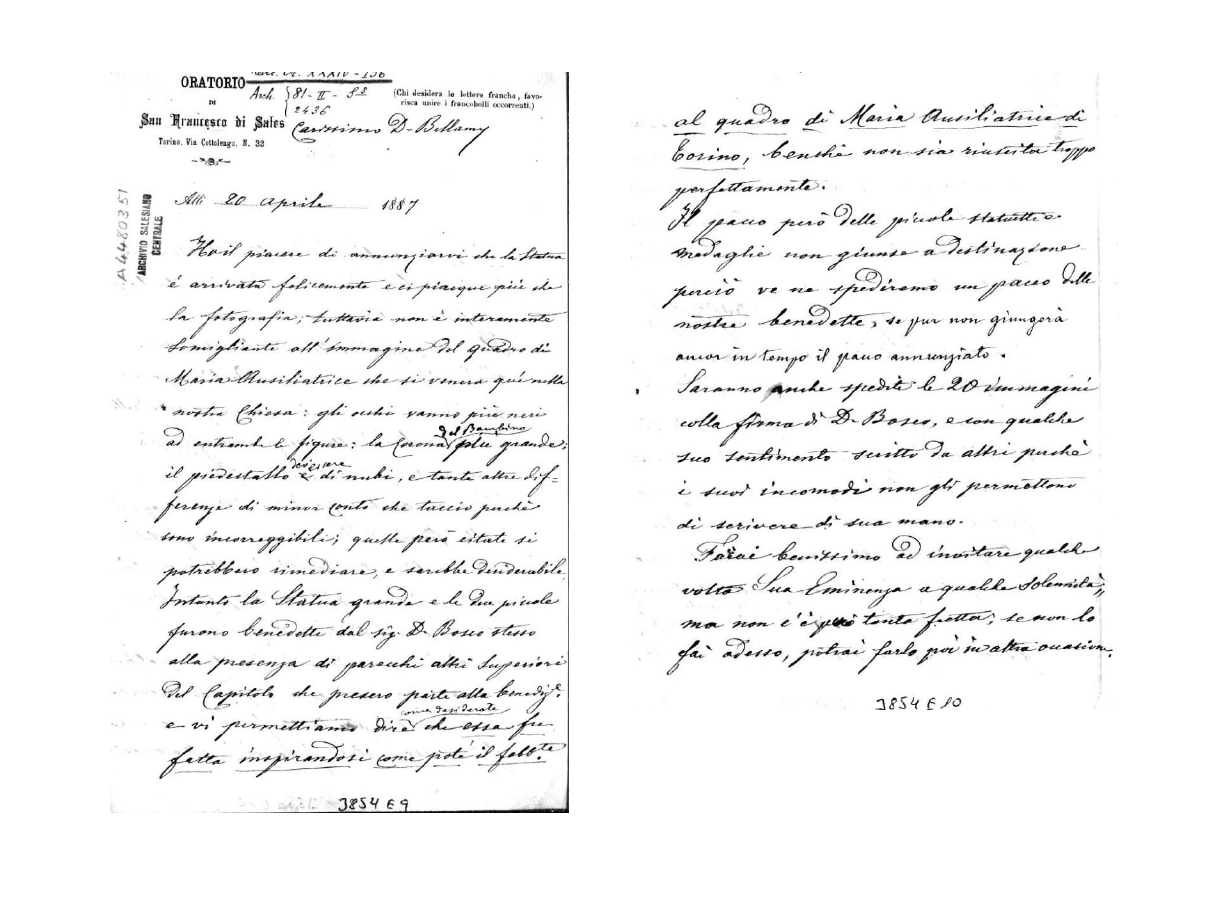 ORATORIO
DI
San Francesco di Sales
Torino. Via Cottolengo, N. 32
Arch. 81-II-S2
2436
(Chi desidera le lettere franche, favo-
risca unire i francobolli occorrenti.)
Carissimo D. Bellamy
Alli 20 Aprile 1887
A4480351
ARCHIVIO SALESIANO
CENTRALE
Ho il piacere di annunziarvi che la Statua
è arrivata felicemente e ci piacque più che
la fotografia; tuttavia non è interamente
somigliante all'immagine del quadro di
Maria Ausiliatrice che si venera qui nella
nostra Chiesa: gli occhi vanno più neri
ad entrambe le figure: la Corona del Bambino più grande;
il piedestallo dev'essere di nubi, e tante altre dif-
ferenze di minor conto che taccio perchè
sono incorreggibili; quelle però citate si
potrebbero rimediare, e sarebbe desiderabile.
Intanto la Statua grande e le due piccole
furono benedette dal sig. D. Bosco stesso
alla presenza di parecchi altri Superiori
del Capitolo che presero parte alla benediz.e.
e vi permettiamo dire come desiderate che essa fu
fatta inspirandosi come potè il fabb.te
3854 E 9
al quadro di Maria Ausiliatrice di
Torino, benchè non sia riuscita troppo
perfettamente.
Il pacco però delle piccole statuette e
medaglie non giunse a destinazione
perciò ve ne spediremo un pacco delle
nostre benedette, se pur non giungerà
ancor in tempo il pacco annunziato.
Saranno anche spedite le 20 immagini
colla firma di D. Bosco, e con qualche
suo sentimento scritto da altri perchè
i suoi incomodi non gli permettono
di scrivere di sua mano.
Farai benissimo ad invitare qualche
volta Sua Eminenza a qualche Solennità,
ma non c'è poi tanta fretta; se non lo
fai adesso, potrai farlo poi in altra occasione.
3854 E 10